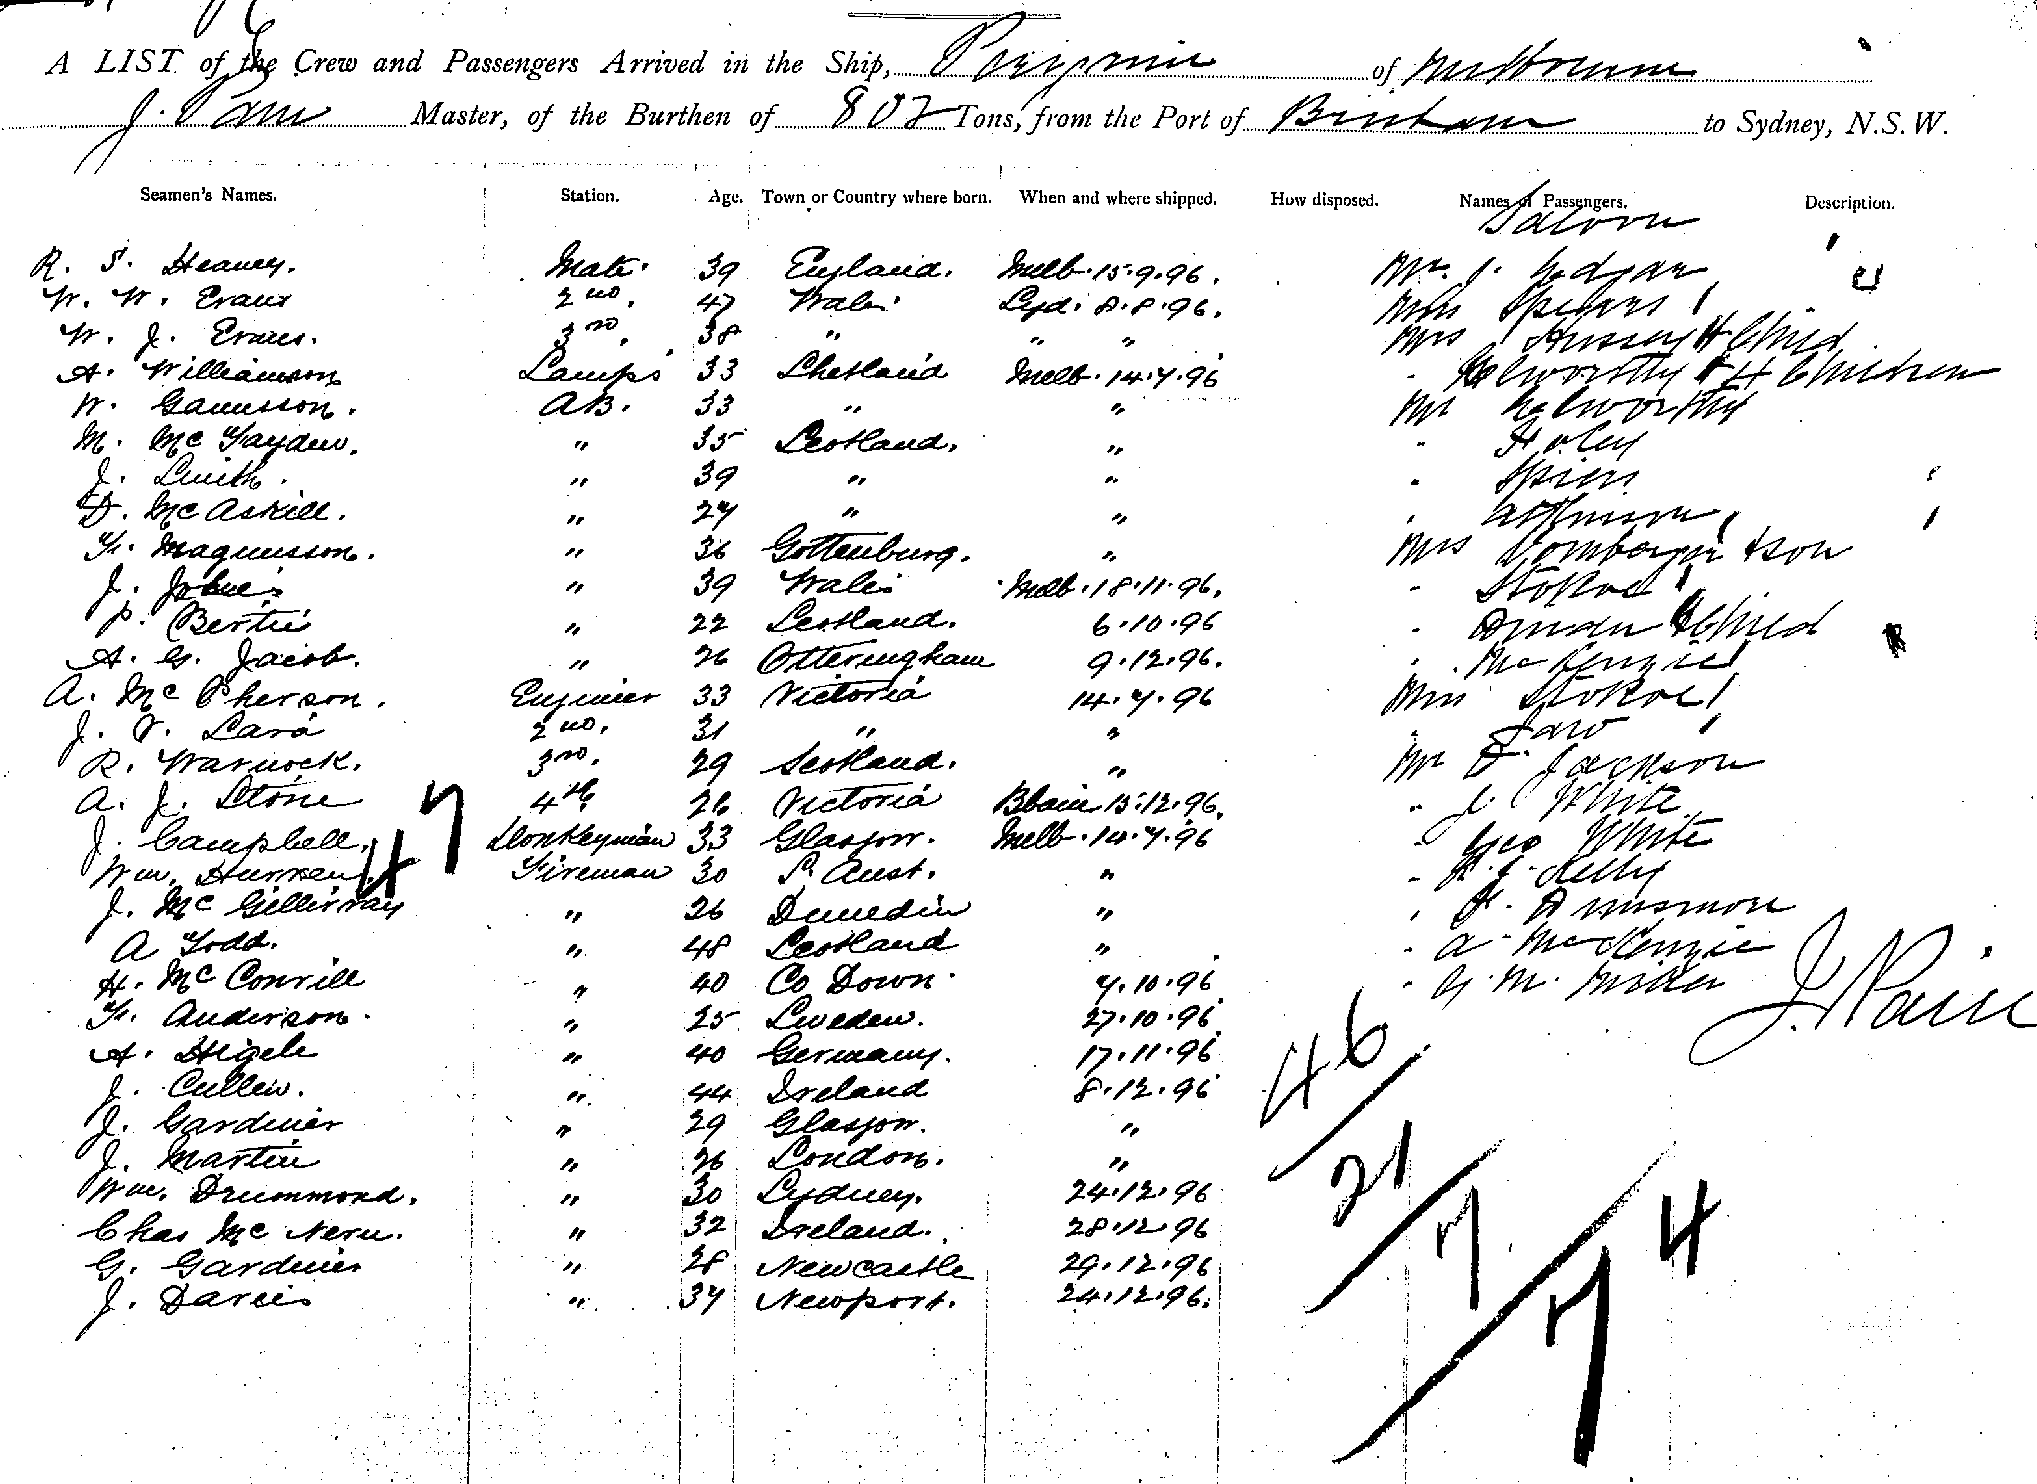 A LIST of the Crew and Passengers Arrived in the Ship, of Melbourne
J. Pain Master, of the Burthen of 802 Tons, from the Port of Brisbane to Sydney, N.S.W.
Seamen's Names. Station. Age. Town or Country where born. When and where shipped. How disposed. Names of Passengers. Description.
Saloon
R. S. Heaney. Mate. 39 England. Melb. 15.9.96. Mr. J. Edgar
W. W. Evans 2nd. 47 Wales Syd. 8.8.96. Miss Spiers
W. J. Evans. 3rd. 38 " " " Mrs Hussey & Child
A. Williamson Lamps 33 Shetland Melb. 14.7.96 " Kelworthy & 4 Children
W. Ganusson. AB. 33 " " Mr Kelworthy
M. McFayden. " 35 Scotland. " "
J. Smith. " 39 " " " Spiers
D. McAskill. " 27 " " " Atkinson
F. Magnusson. " 36 Gottenburg. " Mrs & son
J. " 39 Wales Melb. 18.11.96. " Stokoe
P. Bertie " 22 Scotland. 6.10.96 " & Child
A. G. Jacob. " 26 Otteringham 9.12.96. " McKenzie
A. McPherson. Engineer 33 Victoria 14.7.96 Miss Stokoe
J. V. Lara 2nd. 31 " " "
R. Warnock. 3rd. 29 Scotland. " Mr Jackson
A. J. Stone 4th. 26 Victoria Bbane 15.12.96. " J. White
J. Campbell. Donkeyman 33 Glasgow. Melb. 14.7.96 " Geo White
47
Wm. Fireman 30 S. Aust. " " Kelly
J. McGillivray " 26 Dunedin " "
A Todd. " 48 Scotland " " A. McKenzie
H. McConvill " 40 Co Down. 7.10.96 " G. M. Miller
J. Pain
F. Anderson. " 25 Sweden. 27.10.96
A. Higele " 40 Germany. 17.11.96
46
J. Cullen. " 44 Ireland 8.12.96
J. Gardiner " 29 Glasgow. "
J. Martin " 26 London. "
21
Wm. Drummond. " 30 Sydney. 24.12.96
7
Chas McNern. " 32 Ireland. 28.12.96
G. Gardiner " 28 Newcastle 29.12.96
J. Davies " 37 Newport. 24.12.96.
74